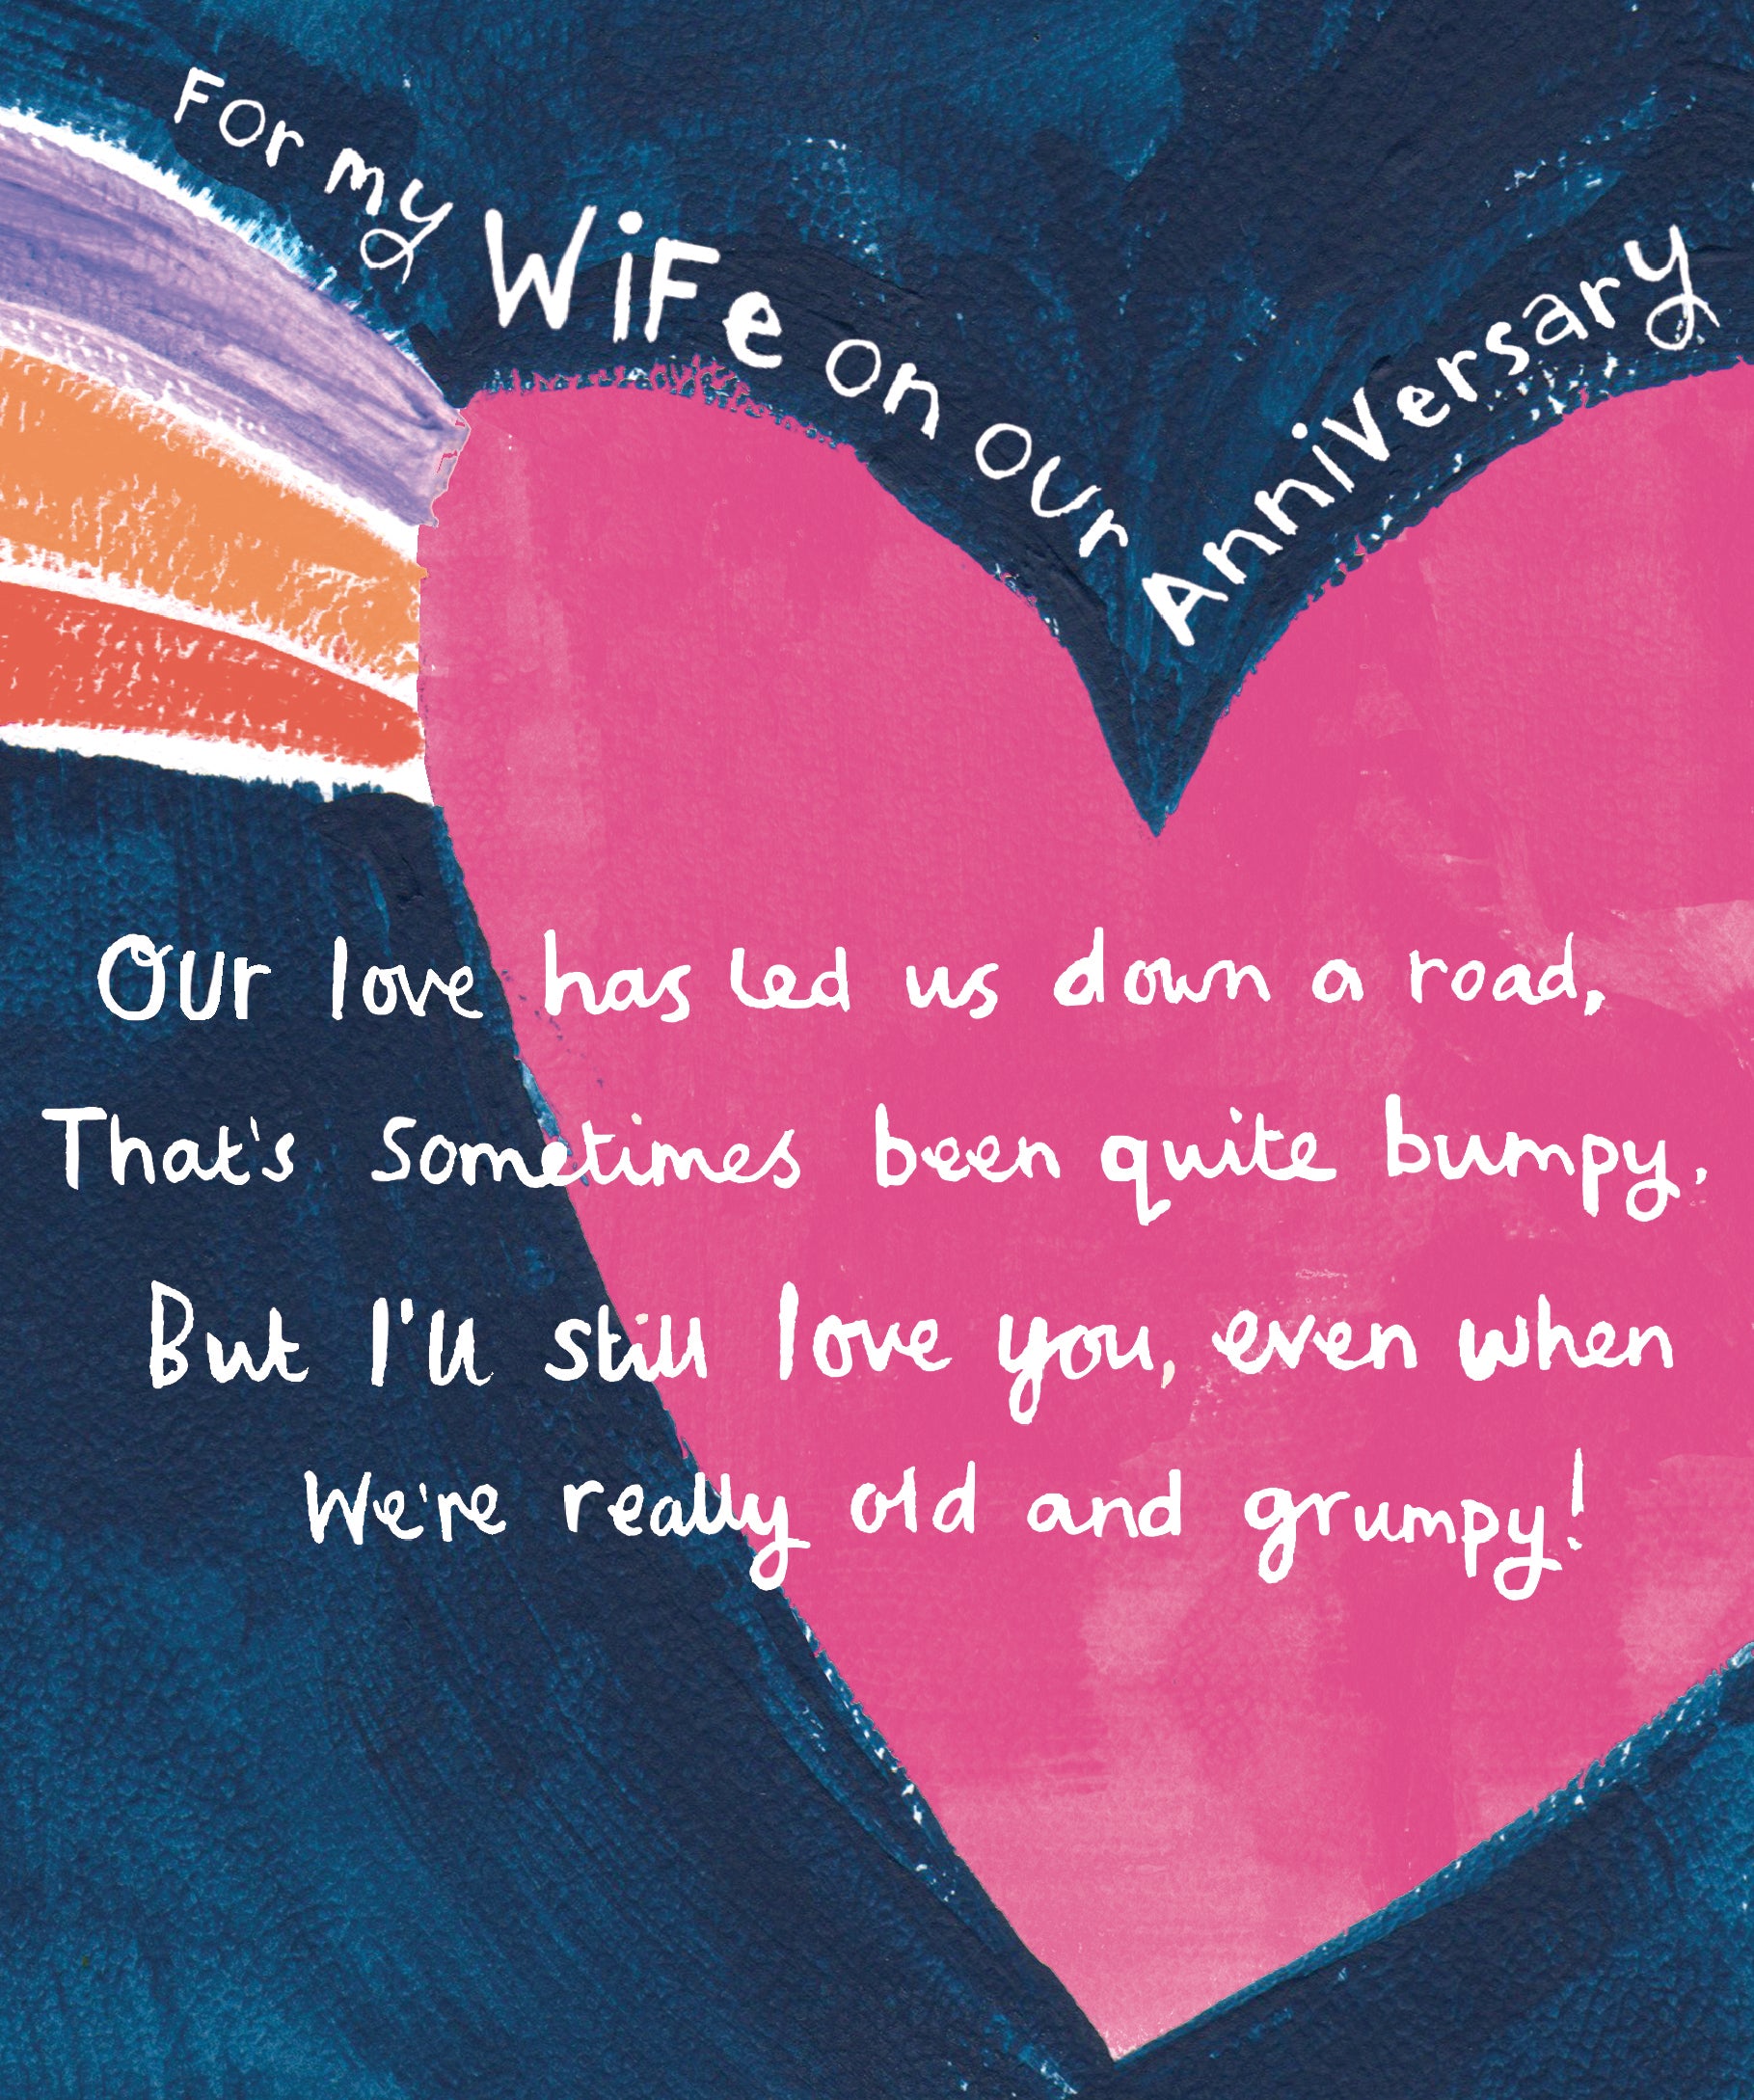 For my WiFe on our Anniversary
Our love has led us down a road,
That's Sometimes been quite bumpy.
But I'll still love you, even when
We're really old and grumpy!